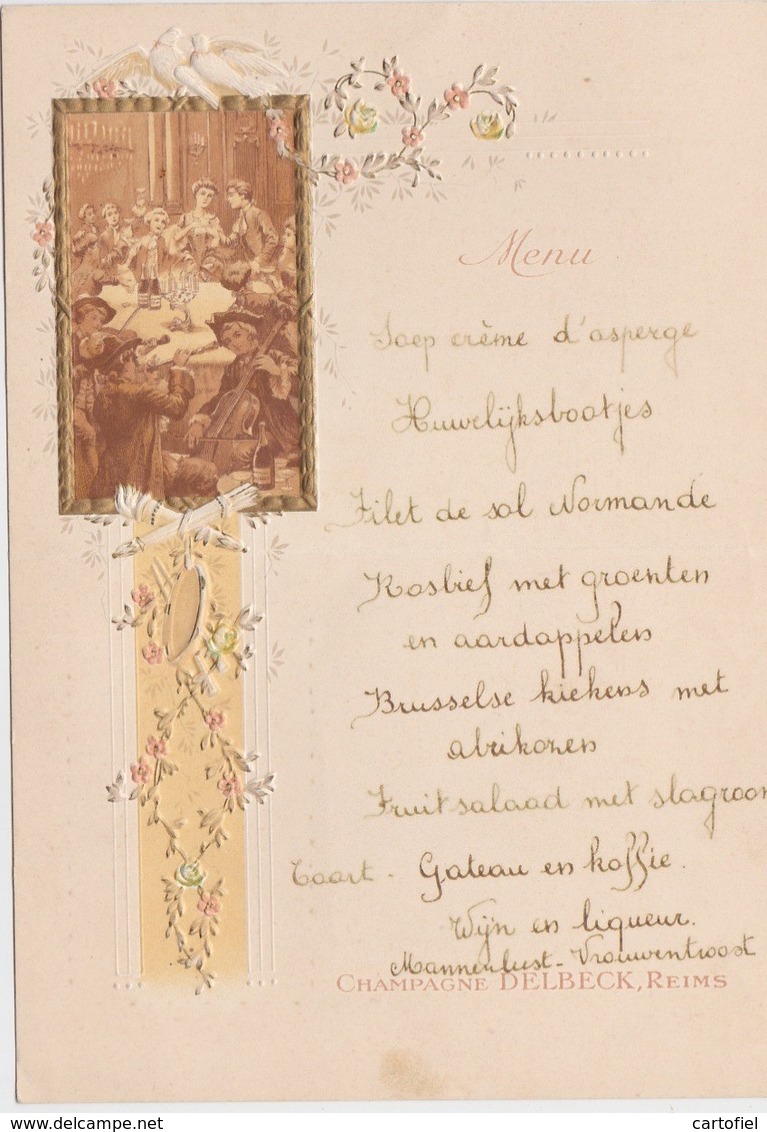 Menu
Soep crème d'asperge
Huwelijksbootjes
Filet de sol Normande
Rosbief met groenten
en aardappelen
Brusselse kiekens met
abrikozen
Fruitsalaad met slagroom
Taart - Gateau en koffie.
Wijn en liqueur.
Mannenlust - Vrouwentroost
CHAMPAGNE DELBECK, REIMS
www.delcampe.net
cartofiel